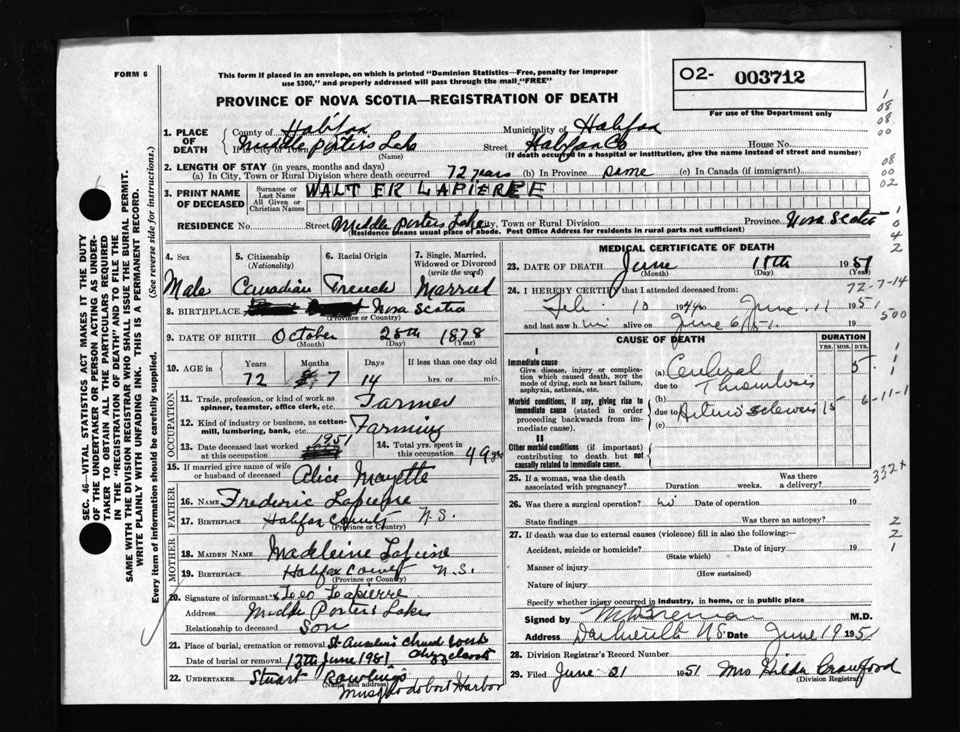 FORM 6
This form if placed in an envelope, on which is printed "Dominion Statistics—Free, penalty for improper
use $300," and properly addressed will pass through the mail "FREE"
O2- 003712
For use of the Department only
PROVINCE OF NOVA SCOTIA—REGISTRATION OF DEATH
1. PLACE OF DEATH
County of Halifax Municipality of Halifax
If in City or Town Middle Porters Lake Street Halifax Co House No.
(Name) (If death occurred in a hospital or institution, give the name instead of street and number)
2. LENGTH OF STAY (in years, months and days)
(a) In City, Town or Rural Division where death occurred 72 years (b) In Province same (c) In Canada (if immigrant)
3. PRINT NAME OF DECEASED
Surname or Last Name
All Given or Christian Names
WALTER LAPIERRE
RESIDENCE No. Street Middle Porters Lake City, Town or Rural Division Province Nova Scotia
(Residence means usual place of abode. Post Office Address for residents in rural parts not sufficient)
4. Sex
Male
5. Citizenship (Nationality)
Canadian
6. Racial Origin
French
7. Single, Married, Widowed or Divorced (write the word)
Married
8. BIRTHPLACE Nova Scotia
(Province or Country)
9. DATE OF BIRTH October 28th 1878
(Month) (Day) (Year)
10. AGE in Years Months Days If less than one day old
72 7 14 hrs. or min.
OCCUPATION
11. Trade, profession, or kind of work as spinner, teamster, office clerk, etc. Farmer
12. Kind of industry or business, as cotton-mill, lumbering, bank, etc. Farming
13. Date deceased last worked at this occupation 1951
14. Total yrs. spent in this occupation 49 yrs
15. If married give name of wife or husband of deceased Alice Mayette
FATHER
16. NAME Frederic Lapierre
17. BIRTHPLACE Halifax County N.S.
(Province or Country)
MOTHER
18. MAIDEN NAME Madeleine Lapierre
19. BIRTHPLACE Halifax County N.S.
(Province or Country)
20. Signature of informant x Leo Lapierre
Address Middle Porters Lake
Relationship to deceased Son
21. Place of burial, cremation or removal St Anselm's Church West Chezzetcook
Date of burial or removal 13th June 1951
22. UNDERTAKER Stuart Rawlings
(Name and address)
Musquodoboit Harbor
MEDICAL CERTIFICATE OF DEATH
23. DATE OF DEATH June 11th 1951
(Month) (Day) (Year)
72-7-14
24. I HEREBY CERTIFY that I attended deceased from:
Feb 10 1944 to June 11 1951
and last saw h im alive on June 6/51 19
CAUSE OF DEATH
DURATION
YRS. MOS. DYS.
I
Immediate cause
Give disease, injury or complication which caused death, not the mode of dying, such as heart failure, asphyxia, asthenia, etc.
(a) Cerebral Thrombosis 5
due to
Morbid conditions, if any, giving rise to immediate cause (stated in order proceeding backwards from immediate cause).
(b)
due to Arterio sclerosis 15
(c)
6-11-1
II
Other morbid conditions (if important) contributing to death but not causally related to immediate cause.
332x
25. If a woman, was the death associated with pregnancy? Duration weeks. Was there a delivery?
26. Was there a surgical operation? no Date of operation 19
State findings Was there an autopsy?
27. If death was due to external causes (violence) fill in also the following:—
Accident, suicide or homicide? Date of injury 19
(State which)
Manner of injury
(How sustained)
Nature of injury
Specify whether injury occurred in industry, in home, or in public place
Signed by M D Brennan M.D.
Address Dartmouth N.S. Date June 19 1951
28. Division Registrar's Record Number
29. Filed June 21 1951 Mrs Hilda Crawford
(Division Registrar)
SEC. 46—VITAL STATISTICS ACT MAKES IT THE DUTY
OF THE UNDERTAKER OR PERSON ACTING AS UNDER-
TAKER TO OBTAIN ALL THE PARTICULARS REQUIRED
IN THE "REGISTRATION OF DEATH" AND TO FILE THE
SAME WITH THE DIVISION REGISTRAR WHO SHALL ISSUE THE BURIAL PERMIT.
WRITE PLAINLY WITH UNFADING INK. THIS IS A PERMANENT RECORD.
Every item of information should be carefully supplied. (See reverse side for instructions.)